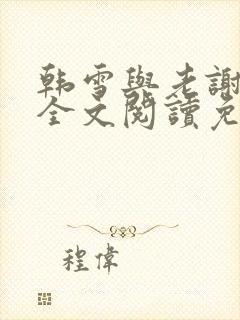 韩雪與老謝
全文閱讀免
程偉